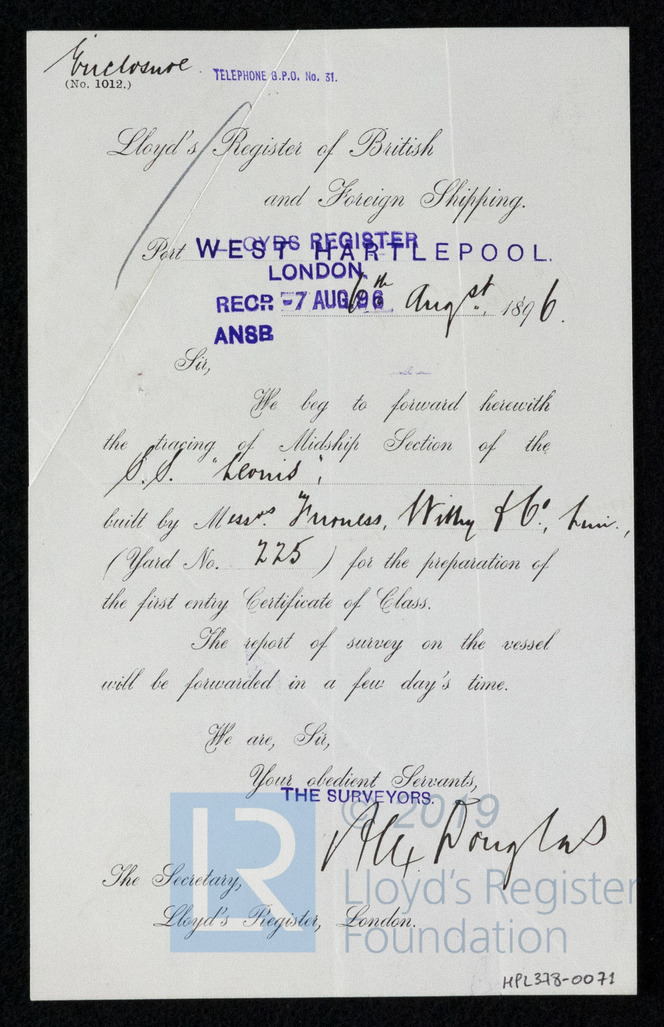 Enclosure
(No. 1012.)
TELEPHONE G.P.O. No. 31.
Lloyd's Register of British
and Foreign Shipping.
Port WEST HARTLEPOOL.
LLOYDS REGISTER
LONDON.
RECD. -7 AUG. 96
ANSD
6th Augst. 1896.
Sir,
We beg to forward herewith
the tracing of Midship Section of the
S.S.
built by Messrs. Furness, Withy & Co., Lim.,
(Yard No. 225) for the preparation of
the first entry Certificate of Class.
The report of survey on the vessel
will be forwarded in a few day's time.
We are, Sir,
Your obedient Servants,
THE SURVEYORS.
Alex Douglas
The Secretary,
Lloyd's Register, London.
LR
© 2019
Lloyd's Register
Foundation
HPL378-0071